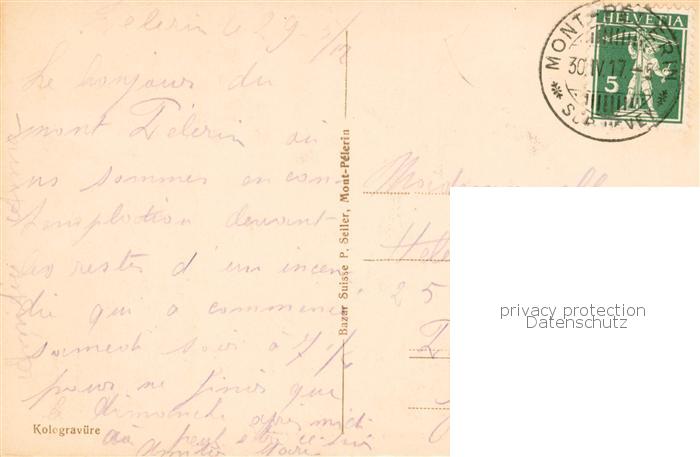 Pelerin le 29
Le bonjour du
mont Pélerin où
ns sommes en con
templation devant
les restes d'un incen
die qui a commencé
samedi soir à 7 1/2
pour ne finir que
le dimanche après midi
Kologravüre
Bazar Suisse P. Seiler, Mont-Pélerin
HELVETIA
5
MONT-PELERIN
30.IV.17.-5
SUR VEVEY
Mademoiselle
25
privacy protection
Datenschutz